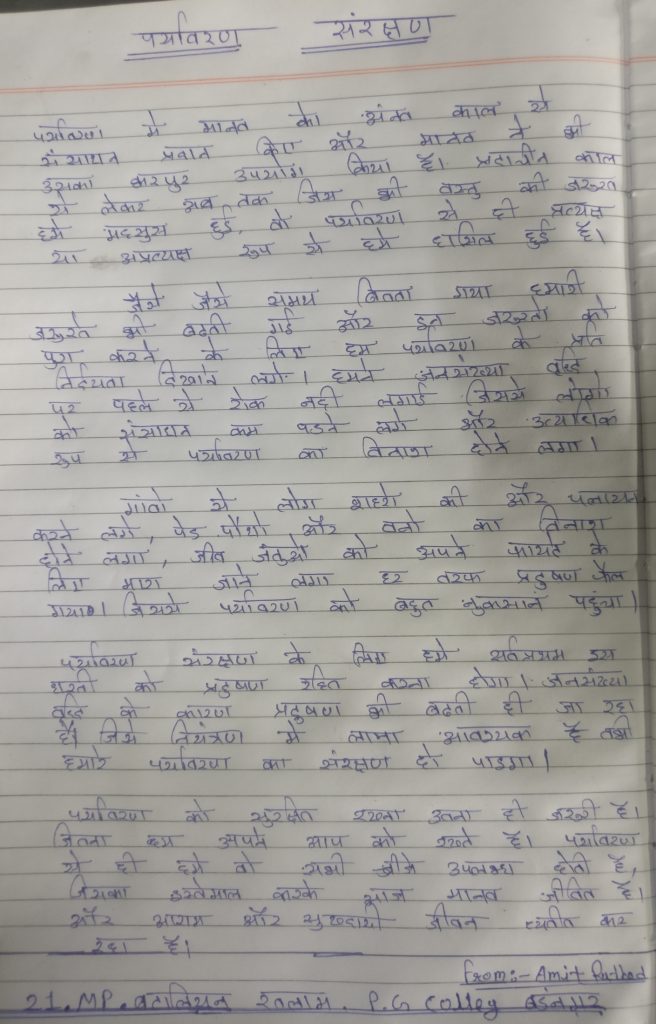 पर्यावरण संरक्षण
पर्यावरण में मानव को अंनत काल से
संसाधन प्रदान किए और मानव ने भी
उसका भरपुर उपयोग किया है। प्राचीन काल
से लेकर अब तक जिस भी वस्तु की जरूरत
हमे महसुस हुई, वो पर्यावरण से ही प्रत्यक्ष
या अप्रत्यक्ष रूप से हमे हासिल हुई है।
जैसे जैसे समय बितता गया हमारी
जरूरते भी बढती गई और इन जरूरतो को
पुरा करने के लिए हम पर्यावरण के प्रति
निर्दयता दिखाने लगे। हमने जनसंख्या वृद्धि
पर पहले से रोक नही लगाई जिससे लोगो
को संसाधन कम पडने लगे और अत्याधिक
रूप से पर्यावरण का विनाश होने लगा।
गांवो से लोग शहरो की और पलायन
करने लगे, पेड पौधो और वनो का विनाश
होने लगा, जीव जंतुओ को अपने फायदे के
लिए मारा जाने लगा हर तरफ प्रदुषण फैल
गया। जिससे पर्यावरण को बहुत नुकसान पहुंचा।
पर्यावरण संरक्षण के लिए हमे सर्वप्रथम इस
धरती को प्रदुषण रहित करना होगा। जनसंख्या
वृद्धि के कारण प्रदुषण भी बढती ही जा रहा
है। जिसे नियंत्रण मे लाना आवश्यक है तभी
हमारे पर्यावरण का संरक्षण हो पाएगा।
पर्यावरण को सुरक्षित रखना उतना ही जरूरी है।
जितना हम अपने आप को रखते है। पर्यावरण
से ही हमे वो सभी चीजे उपलब्ध होती है,
जिसका इस्तेमाल करके आज मानव जीवित है।
और आराम और सुखदायी जीवन व्यतीत कर
रहा है।
from:- Amit
21. MP. बटालियन रतलाम. P.G Colleg बडनगर